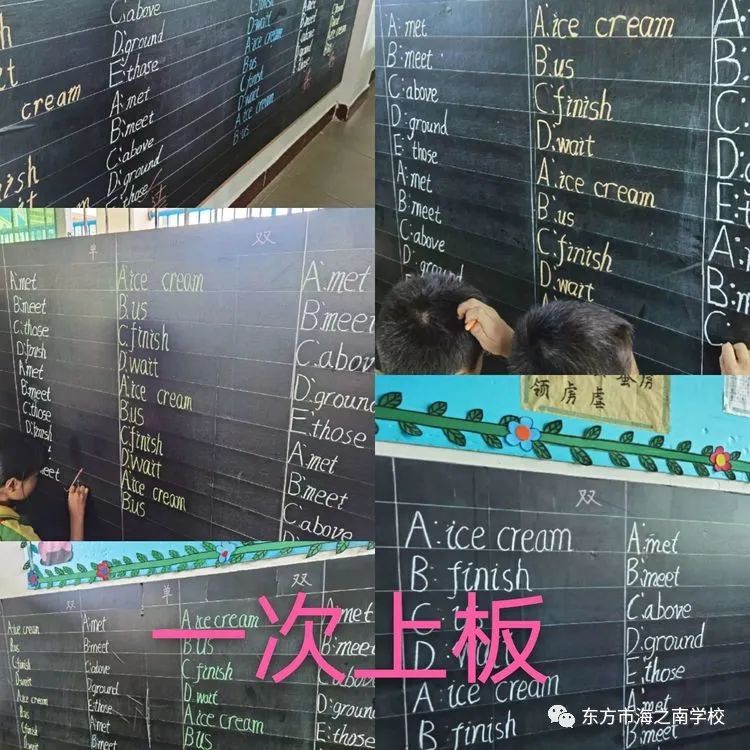 C:above
D:ground
E:those
A:met
B:meet
C:above
D:ground
E:those
cream
D:wait
A:ice cream
B:us
C:finish
D:wait
A:ice cream
B:us
A: met
B:meet
C:above
D:ground
E:those
A:met
B:meet
C:above
D:ground
A:ice cream
B:us
C:finish
D:wait
A:ice cream
B:us
C:finish
D:wait
单
双
A:met
B:meet
C:those
D:finish
A:met
B:meet
C:those
D:finish
A:ice cream
B:us
C:finish
D:wait
A:ice cream
B:us
C:finish
D:wait
A:ice cream
B:us
A:met
B:meet
C:above
D:ground
E:those
A:met
B:meet
C:above
领 虏 虐
双
A:ice cream
B:finish
A:ice cream
B:finish
A:met
B:meet
C:above
D:ground
E:those
A:met
B:meet
双
单
双
A:ice cream
B:us
C:finish
D:wait
A:ice cream
B:us
C:finish
D:wait
A:met
B:meet
C:above
D:ground
E:those
A:met
B:meet
A:ice cream
B:us
C:finish
D:wait
A:ice cream
B:us
A:met
B:meet
C:above
D:ground
E:those
一次上板
东方市海之南学校